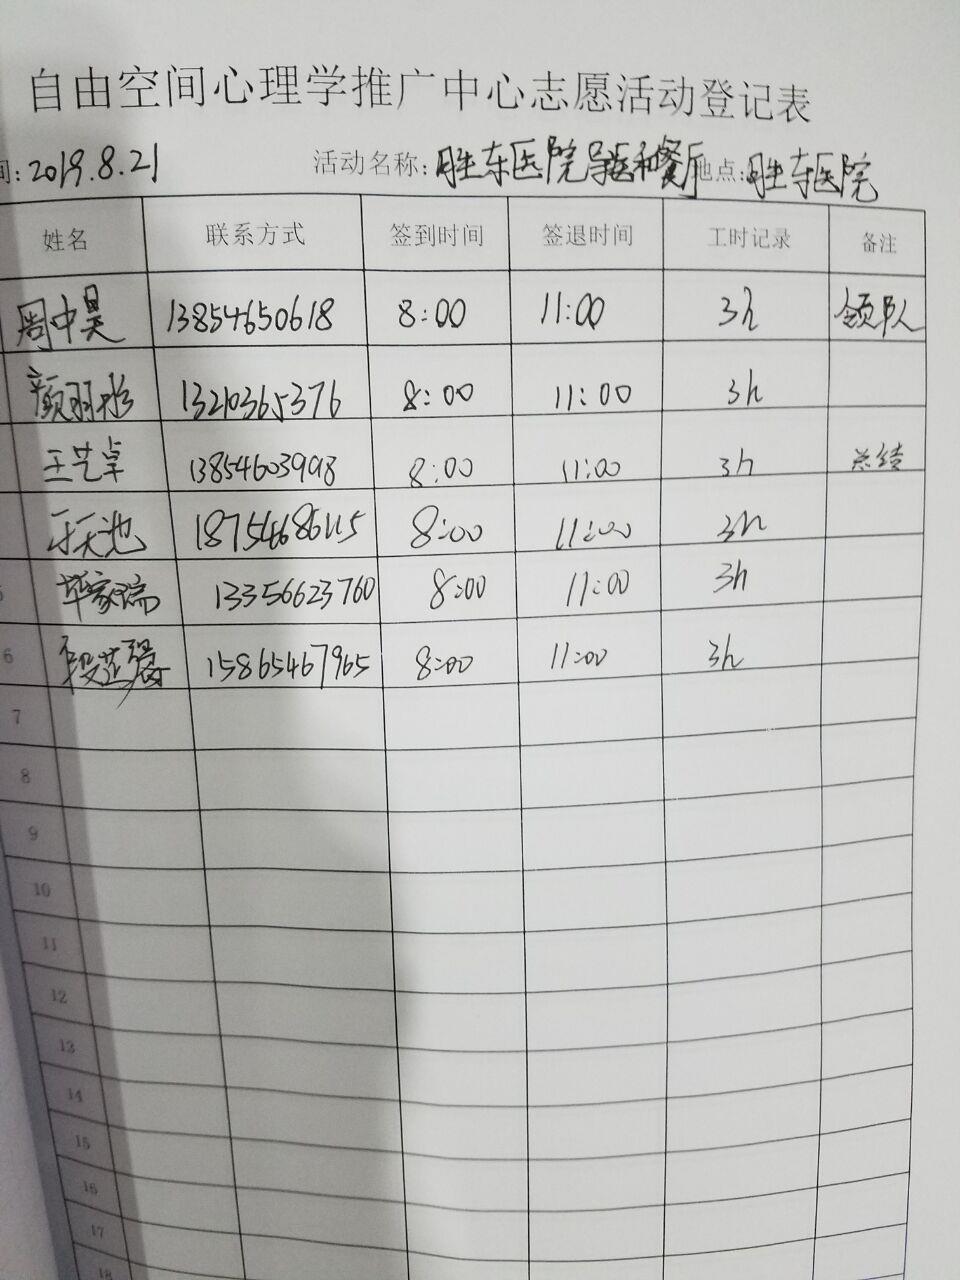 自由空间心理学推广中心志愿活动登记表
间:2019.8.21 活动名称:胜东医院导医和餐厅 地点:胜东医院
姓名 联系方式 签到时间 签退时间 工时记录 备注
周中昊 13854650618 8:00 11:00 3h 领队
颜羽彤 13210365376 8:00 11:00 3h
王艺卓 13854603998 8:00 11:00 3h 总结
于天池 18754686115 8:00 11:00 3h
5 毕家瑞 13356623760 8:00 11:00 3h
6 段芷馨 15865467965 8:00 11:00 3h
7
8
9
10
11
12
13
14
15
16
17
18